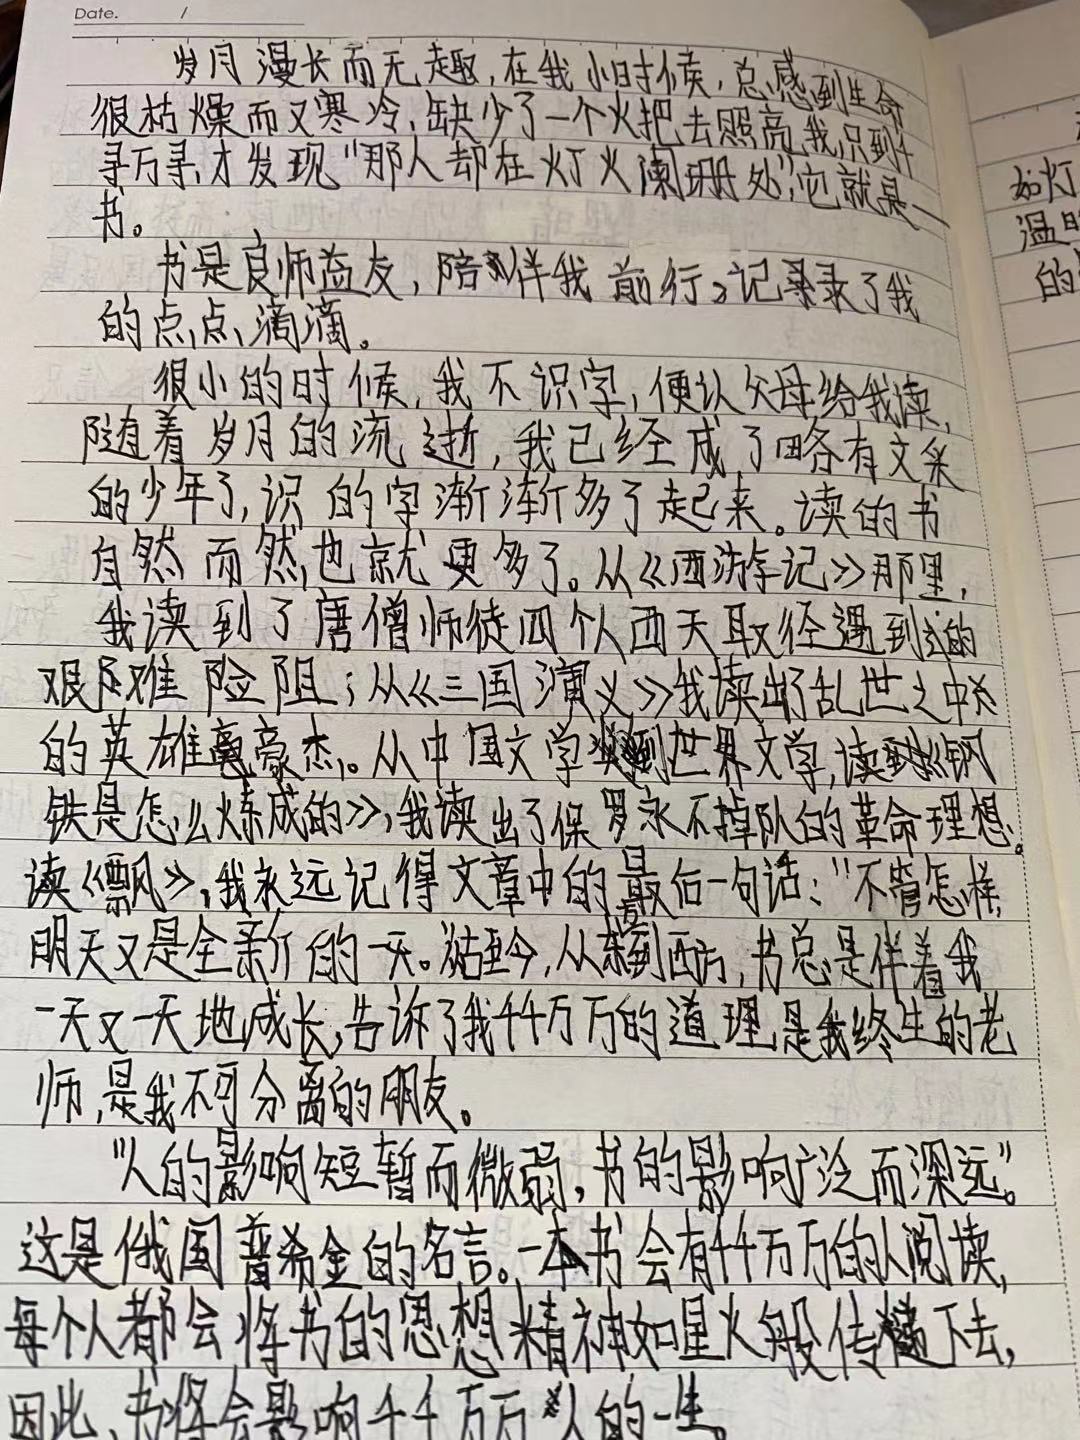 Date. /
岁月漫长而无趣,在我小时候,总感到生命
很枯燥而又寒冷,缺少了一个火把去照亮我,只到千
寻万寻,才发现“那人却在灯火阑珊处”,它就是一
书。
书是良师益友,陪伴我前行,记录录了我
的点点滴滴。
很小的时候,我不识字,便认父母给我读,
随着岁月的流逝,我已经成了略有文采
的少年了,识的字渐渐多了起来。读的书
自然而然也就更多了。从《西游记》那里,
我读到了唐僧师徒四个人西天取径遇到的
艰难险阻;从《三国演义》我读出了乱世之中
的英雄豪杰。从中国文学到世界文学,读到《钢
铁是怎么炼成的》,我读出了保罗永不掉队的革命理想。
读《飘》,我永远记得文章中的最后一句话:“不管怎样,
明天又是全新的一天。从古至今,从东到西方,书总是伴着我
一天又一天地成长,告诉了我千千万万的道理,是我终生的老
师,是我不可分离的朋友。
“人的影响短暂而微弱,书的影响广泛而深远”。
这是俄国普希金的名言。一本书会有千千万万的人阅读,
每个人都会将书的思想精神如星火般传递下去,
因此,书将会影响千千万万人的一生。
如灯
温暖
的